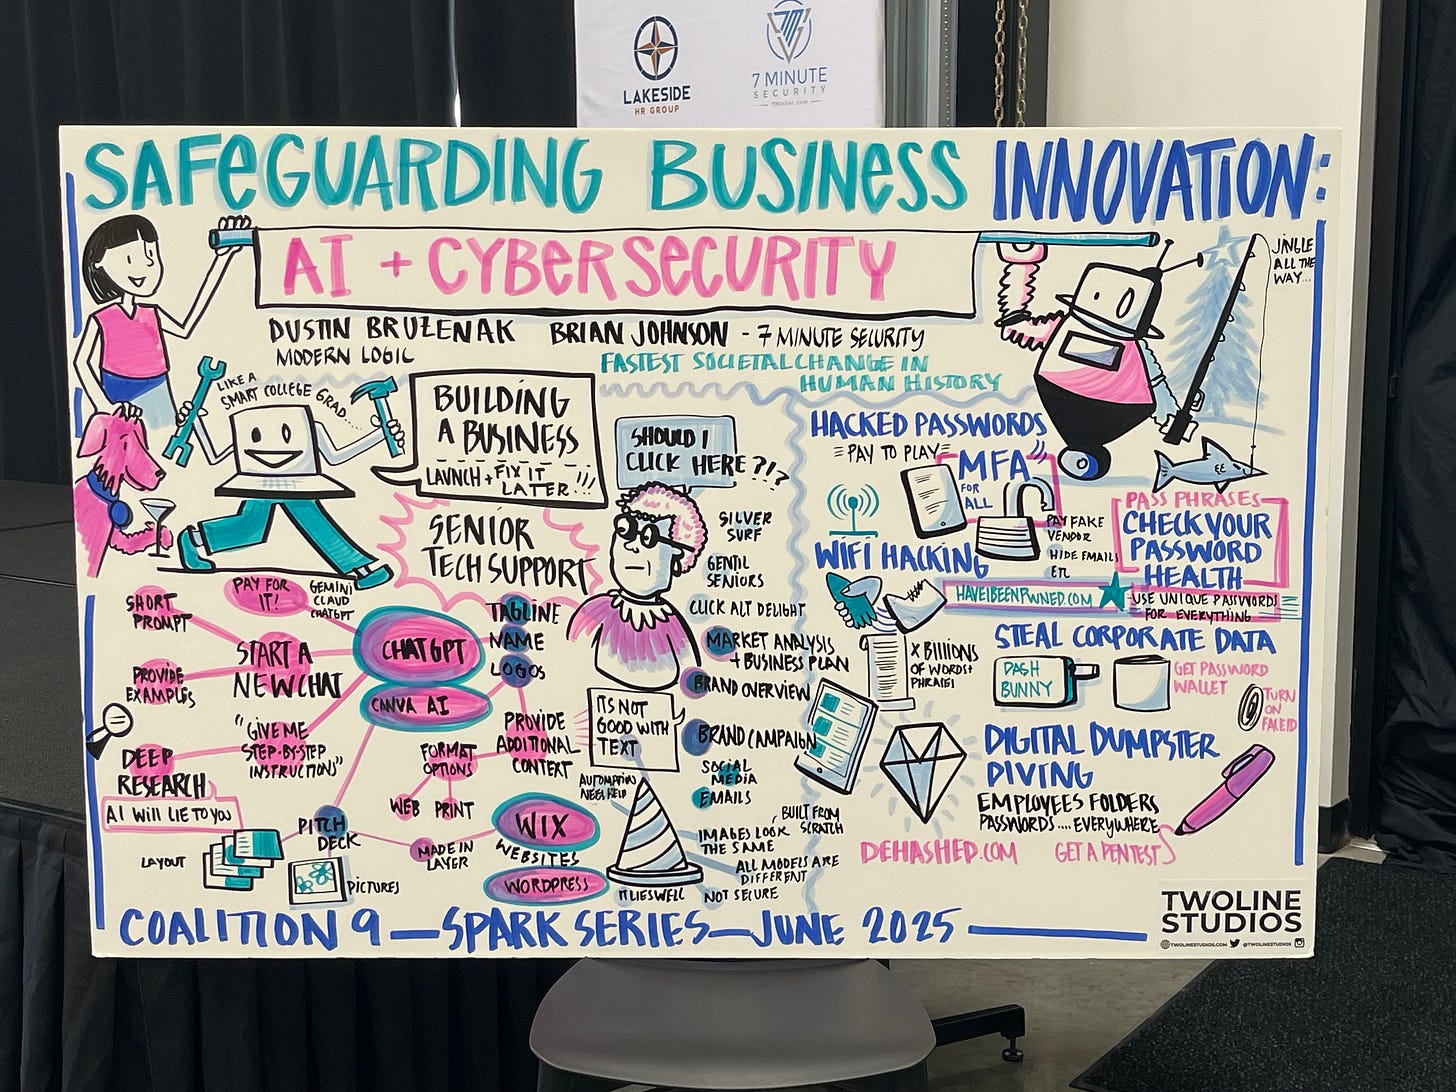 LAKESIDE
HR GROUP
7 MINUTE
SECURITY
7MinSec.com
SAFeGUARDING BUSINeSS INNOVATION:
AI + CYBERSECURITY
JINGLE
ALL THE
WAY...
DUSTIN BRUZENAK
MODERN LOGIC
BRIAN JOHNSON - 7 MINUTE SECURITY
FASTEST SOCIETAL CHANGE IN
HUMAN HISTORY
LIKE A
SMART COLLEGE GRAD...
BUILDING
A BUSINESS
LAUNCH + FIX IT
LATER...!!!
SENIOR
TECH SUPPORT
SHOULD I
CLICK HERE?!?
SILVER
SURF
GENTIL
SENIORS
CLICK ALT DELIGHT
MARKET ANALYSIS
+ BUSINESS PLAN
BRAND OVERVIEW
BRAND CAMPAIGN
SOCIAL
MEDIA
EMAILS
PAY FOR
IT?
GEMINI
CLAUD
CHATGPT
SHORT
PROMPT
START A
NEW CHAT
PROVIDE
EXAMPLES
"GIVE ME
STEP-BY-STEP
INSTRUCTIONS"
DEEP
RESEARCH
AI WILL LIE TO YOU
CHAT GPT
CANVA AI
TAGLINE
NAME
LOGOS
PROVIDE
ADDITIONAL
CONTEXT
FORMAT
OPTIONS
WEB PRINT
PITCH
DECK
LAYOUT
PICTURES
MADE IN
LAYER
WIX
WEBSITES
WORDPRESS
ITS NOT
GOOD WITH
TEXT
AUTOMATION
NEEDS HELP
IT LIES WELL
IMAGES LOOK
THE SAME
BUILT FROM
SCRATCH
ALL MODELS ARE
DIFFERENT
NOT SECURE
HACKED PASSWORDS
PAY TO PLAY
MFA
FOR
ALL
PAY FAKE
VENDOR
HIDE EMAILS
ETC
WIFI HACKING
PASS PHRASES
CHECK YOUR
PASSWORD
HEALTH
HAVEIBEENPWNED.COM
USE UNIQUE PASSWORDS
FOR EVERYTHING
X BILLIONS
OF WORDS +
PHRASES
STEAL CORPORATE DATA
BASH
BUNNY
GET PASSWORD
WALLET
TURN
ON
FACEID
DIGITAL DUMPSTER
DIVING
EMPLOYEES FOLDERS
PASSWORDS .... EVERYWHERE
DEHASHED.COM
GET A PENTEST
COALITION 9 — SPARK SERIES — JUNE 2025
TWOLINE
STUDIOS
TWOLINESTUDIOS.COM @TWOLINESTUDIOS